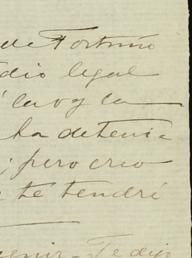 de Fortuño
dio legal
la o y la
la detenia
; pero creo
te tendré
enir. Te dije